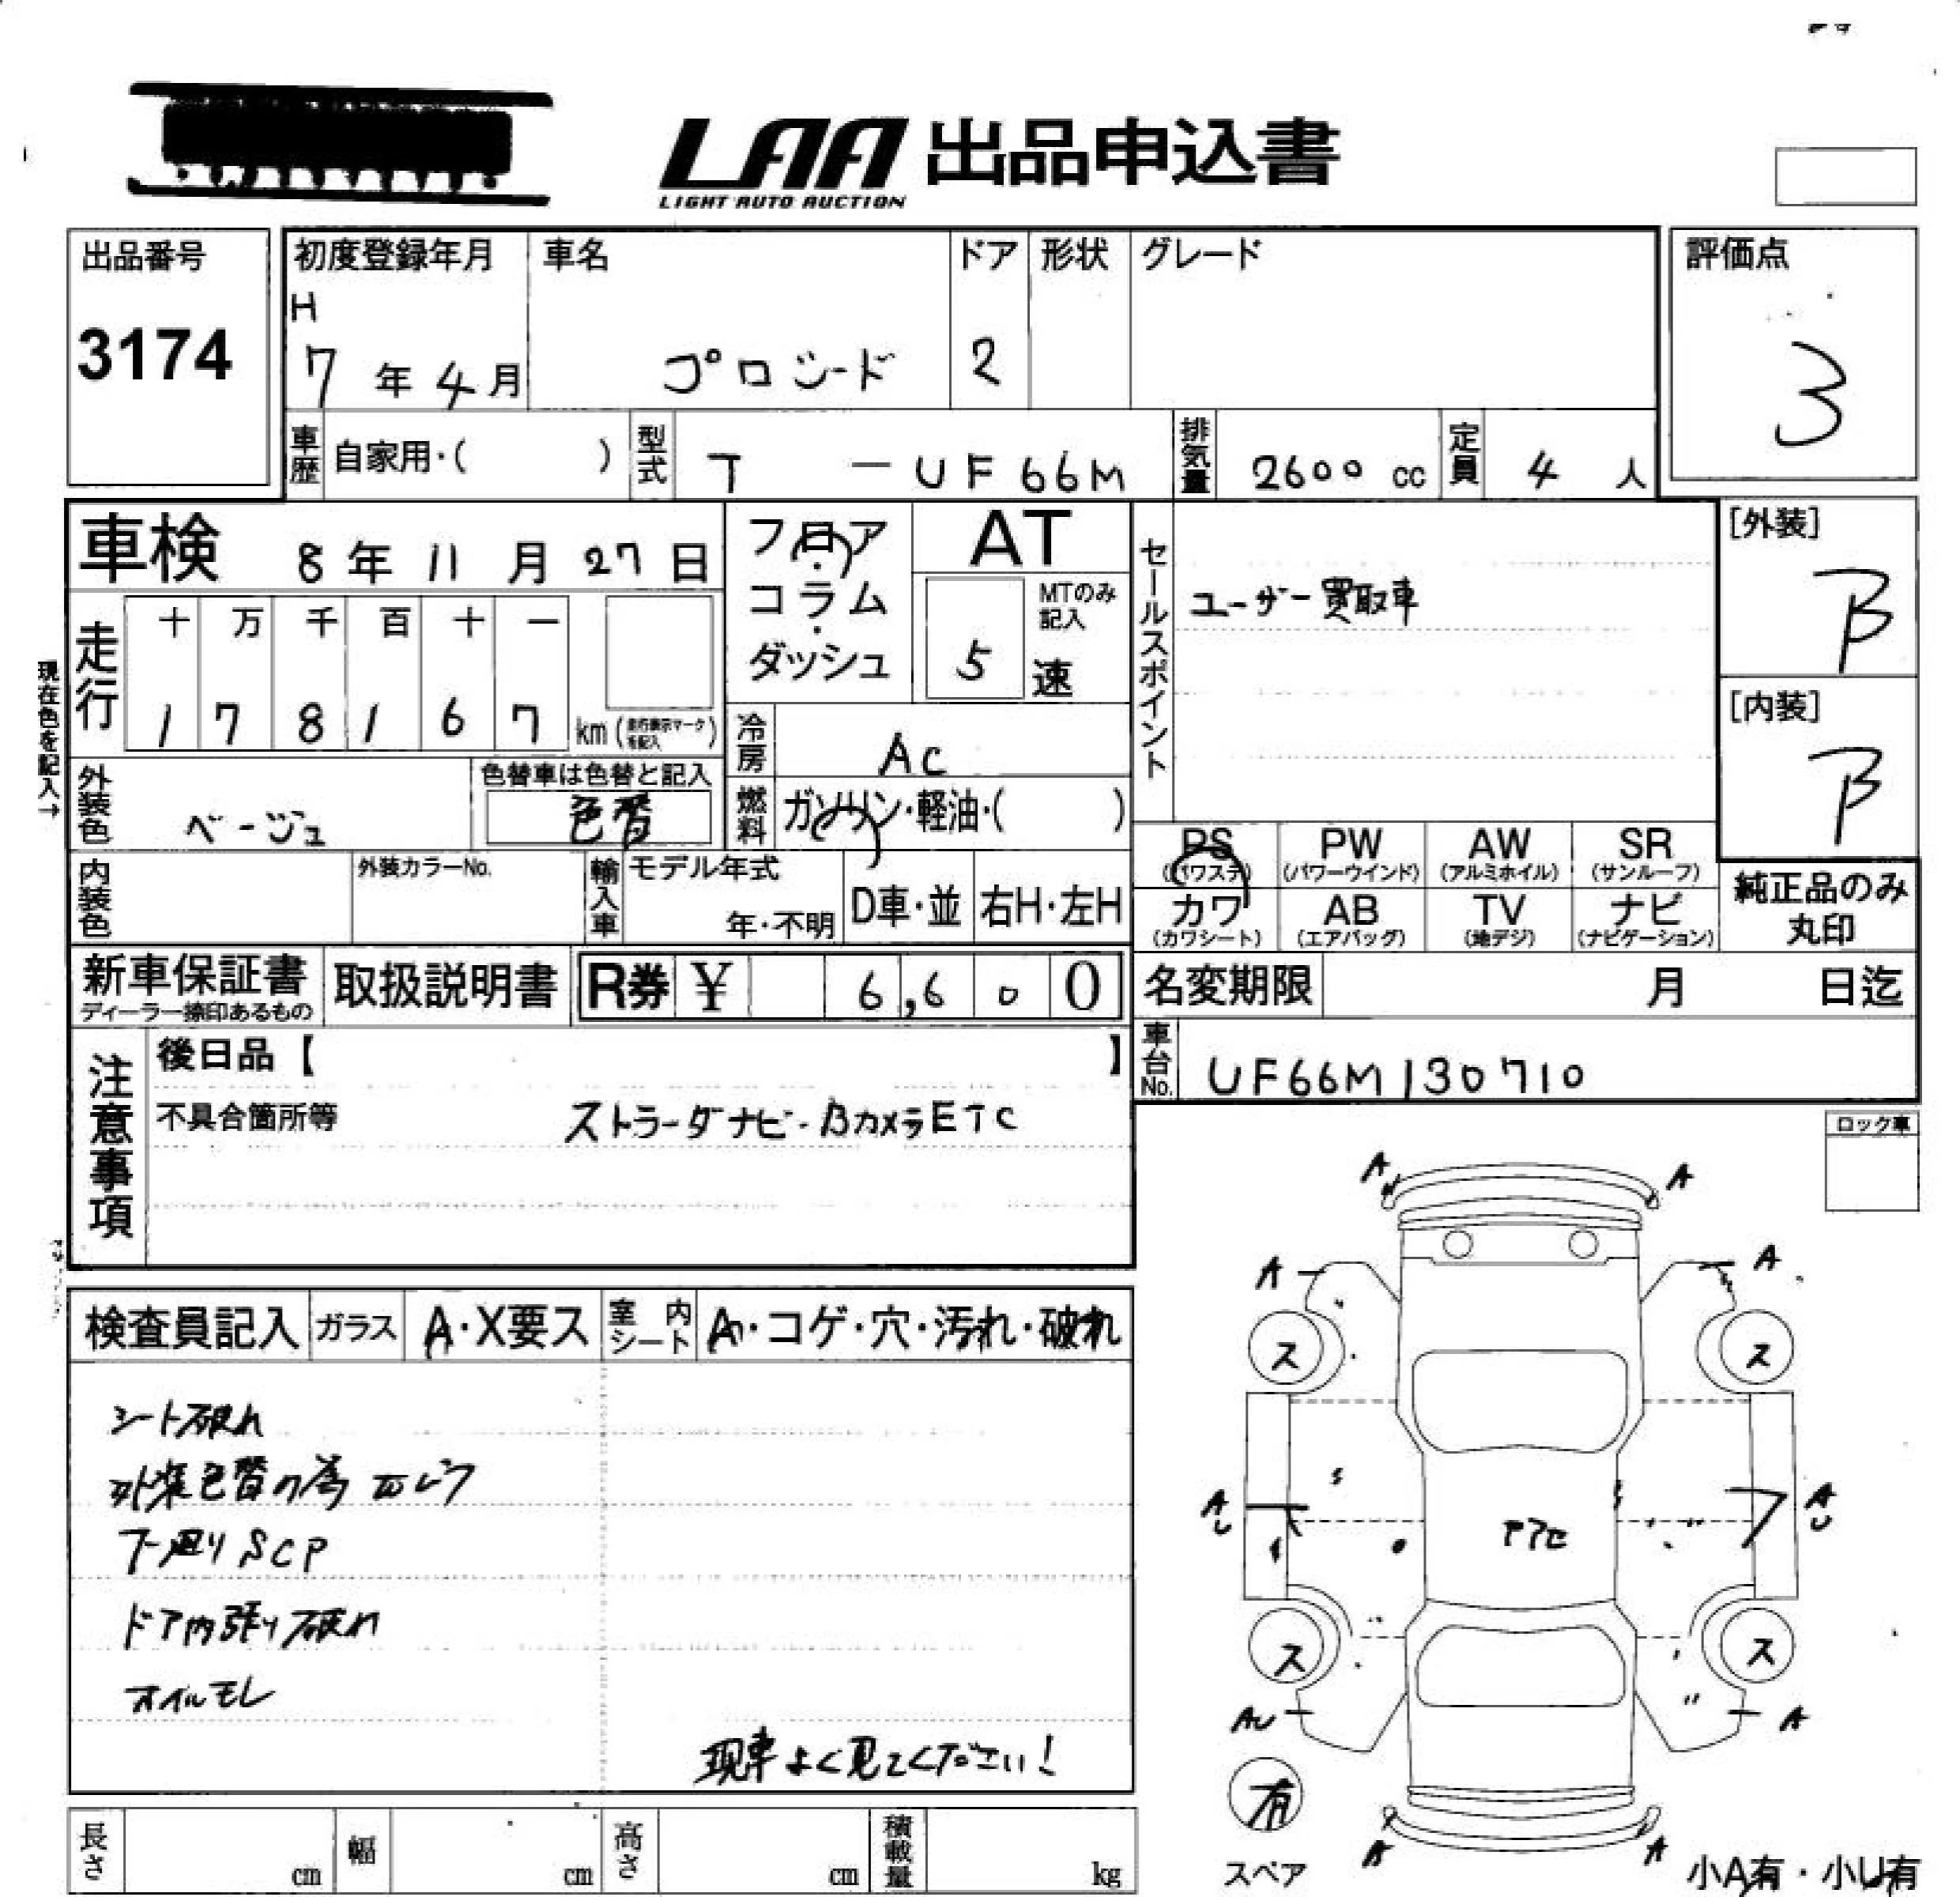 LAA 出品申込書
LIGHT AUTO AUCTION
出品番号
3174
初度登録年月
H
7 年 4 月
車名
プロシード
ドア
2
形状
グレード
評価点
3
車歴 自家用・( )
型式 T - UF66M
排気量 2600 cc
定員 4 人
車検 8 年 11 月 27 日
フロア・コラム・ダッシュ
AT
MTのみ記入
5 速
セールスポイント
ユーザー買取車
[外装]
B
[内装]
B
現在色を記入→
走行
十 万 千 百 十 一
1 7 8 1 6 7 km
冷房 AC
外装色 ベージュ
色替車は色替と記入
色替
燃料 ガソリン・軽油・( )
PS (パワステ)
PW (パワーウインド)
AW (アルミホイル)
SR (サンルーフ)
カワ (カワシート)
AB (エアバッグ)
TV (地デジ)
ナビ (ナビゲーション)
純正品のみ丸印
内装色
外装カラーNo.
輸入車
モデル年式
年・不明
D車・並
右H・左H
新車保証書
ディーラー捺印あるもの
取扱説明書
R券 ¥ 6,6 0 0
名変期限 月 日迄
車台No. UF66M130710
注意事項
後日品【 】
不具合箇所等 ストラーダナビ・Bカメラ ETC
ロック車
検査員記入
ガラス A・X要ス
室内シート A・コゲ・穴・汚れ・破れ
シート破れ
外装色替の為
下廻りSCP
ドア内張り破れ
オイルモレ
現車よく見てください!
A A
A A
ス ス
AU AU
ス ス
AU A
有
スペア
A A
小A有・小U有
長さ cm
幅 cm
高さ cm
積載量 kg